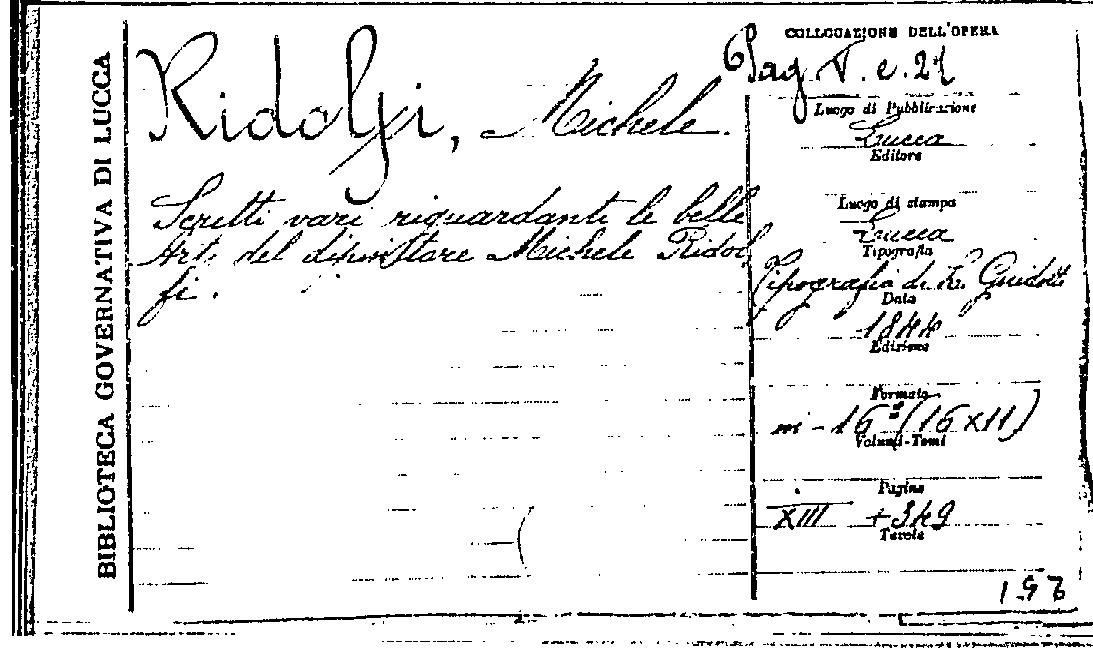 BIBLIOTECA GOVERNATIVA DI LUCCA
Ridolfi, Michele.
Scritti vari riguardanti le belle
Arti del dipintore Michele Ridol
fi.
COLLOCAZIONE DELL'OPERA
Pag V. e. 21
Luogo di Pubblicazione
Lucca
Editore
Luogo di stampa
Lucca
Tipografia
Tipografia di L. Guidotti
Data
1844
Edizione
Formato
in-16º (16x11)
Volumi-Tomi
Pagine
XIII + 349
Tavole